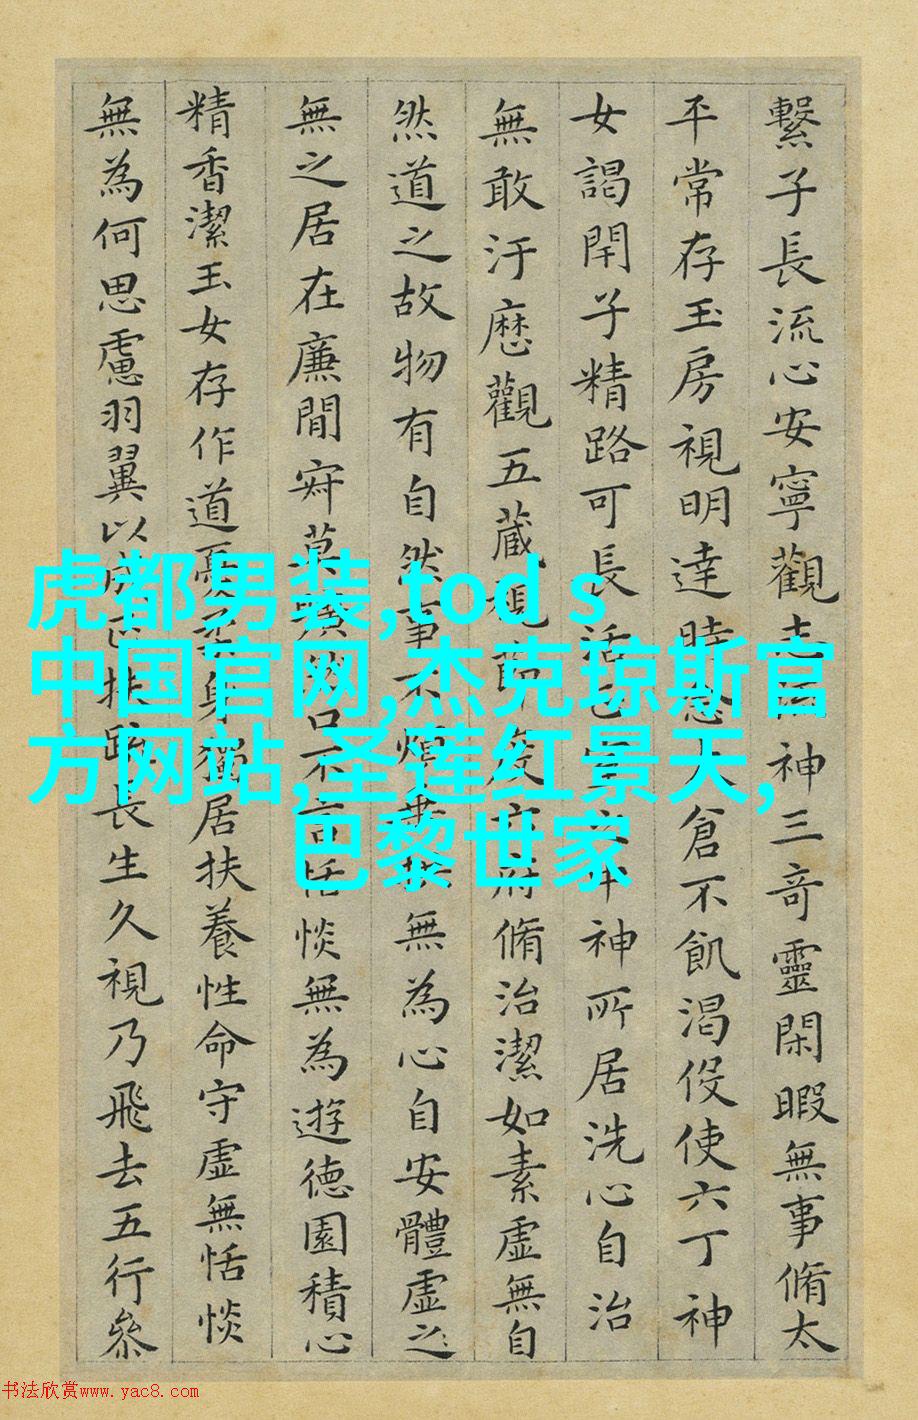 繫子長流心安寧觀志神三奇靈閑暇無事脩太
平常存玉房視明達時大倉不飢渴役使六丁神
女謁閇子精路可長活神所居洗心自治
無敢汙歷觀五藏視節度六府脩治潔如素虛無自
然道之故物有自然事不煩無為心自安體虛之
無之居在廉間寂莫曠然口不言恬惔無為遊德園積心
精香潔玉女存作道憂柔身獨居扶養性命守虛無恬惔
無為何思慮羽翼以成正扶疏長生久視乃飛去五行參
虎都男装,tod s
中国官网,杰克琼斯官
方网站,圣莲红景天,
巴黎世家
书法欣赏www.yac8.com